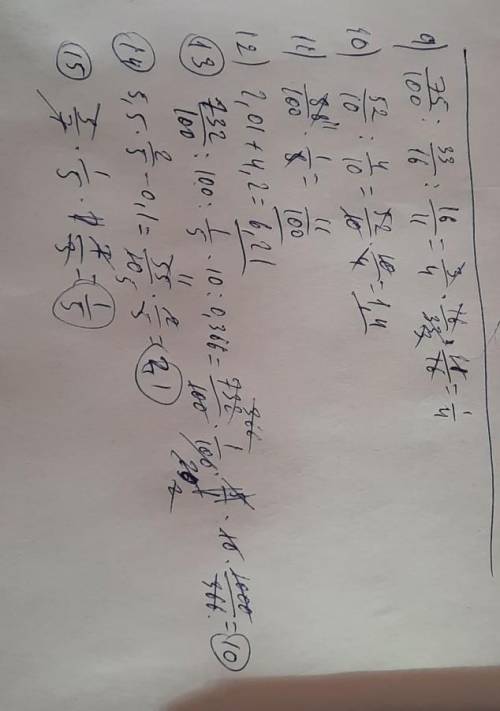 9) 75/100 : 33/16 : 16/11 = 3/4 · 16/33 · 11/16 = 1/4
10) 52/10 : 4/10 = 52/10 · 10/4 = 1,4
11) 88/100 · 1/8 = 11/100
12) 2,01 + 4,2 = 6,21
13) 732/100 : 100 : 1/5 · 10 : 0,366 = 732/100 · 1/100 · 10 · 1000/366 = 10
14) 5,5 · 2/5 - 0,1 = 55/10 · 2/5 = 2,1
15) 3/7 · 1/5 · 7/3 = 1/5